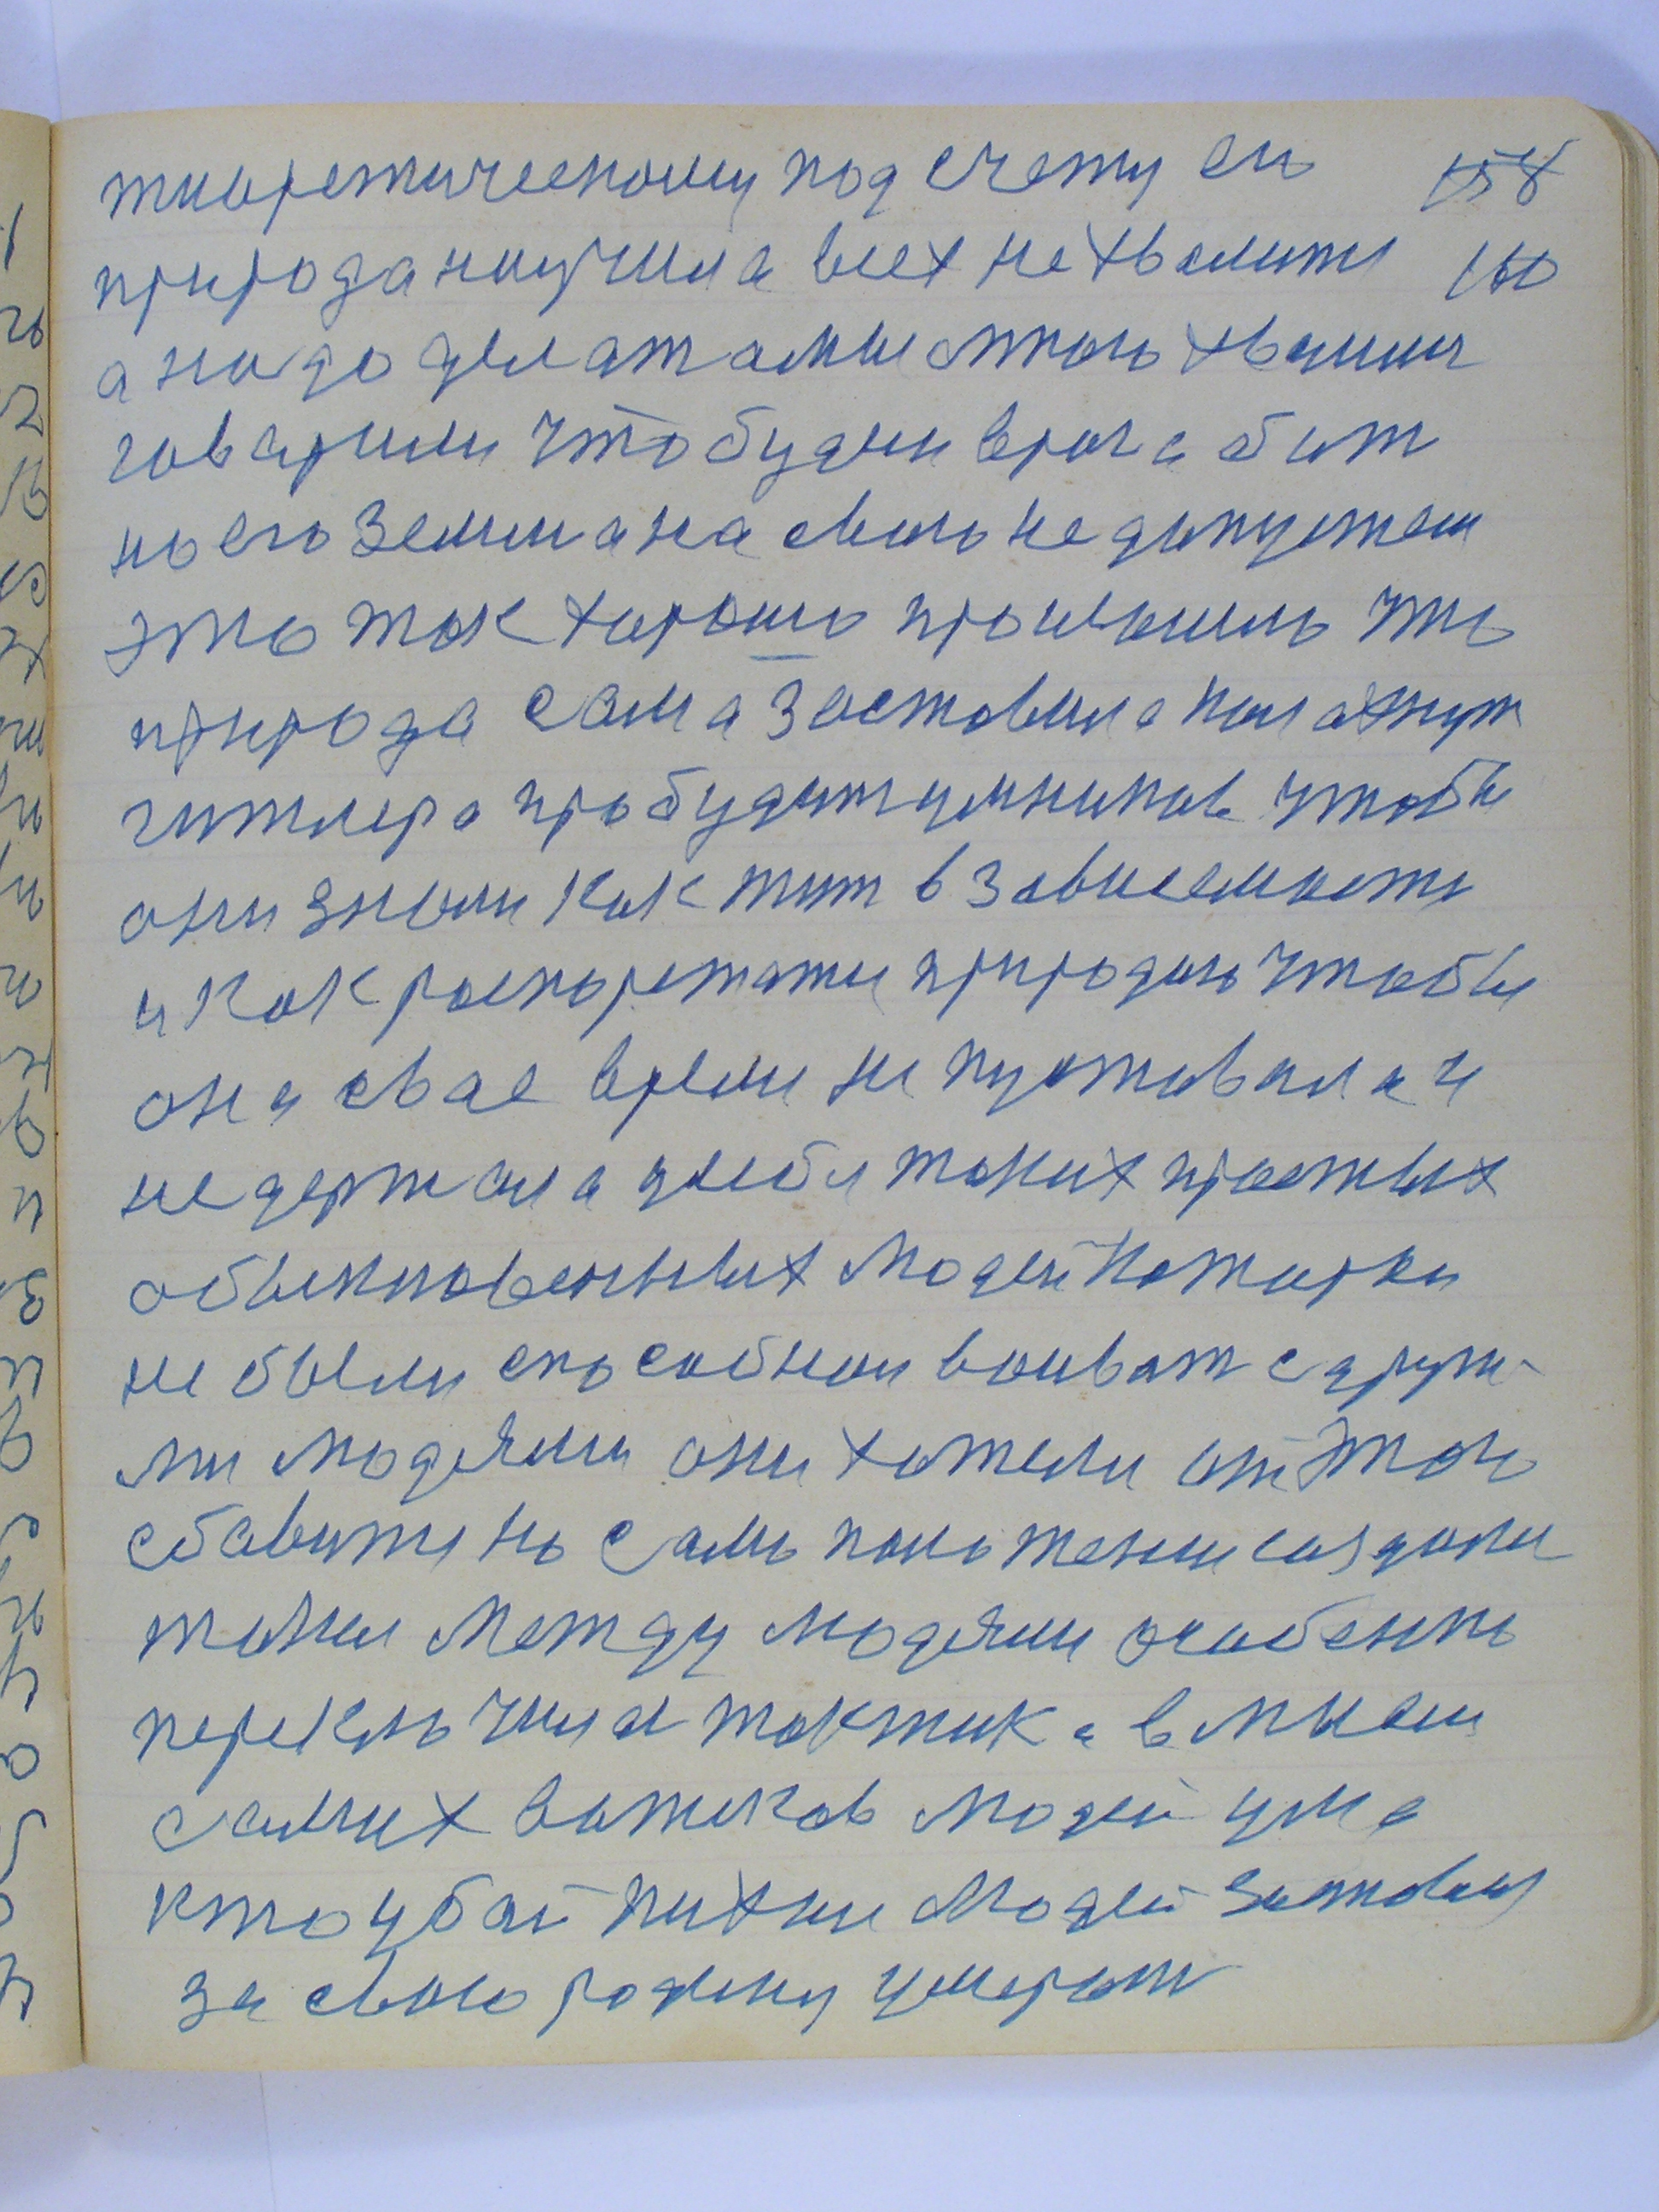 тиоретическому под счету ены 158
природа научила всех не хвалитя 160
а надо делат а мы много хвалили
говарили что будем врага бит
на его земли а на свою недапустем
это так харашо прошвашило что
природа сама заставила напатнут
гитлера пробудит умников чтобы
они знали как тит в зависемасти
и как распоретатся природаю чтобы
она свае время ни пуставала и
не держала у себя таких простых
обыкновенных людей патирки
не были способнои воиват с други-
ми людями они хотели от этого
сбавится но само полотение создали
такии между людями особенно
переключилася тактика в мысли
самих вотиков людей ума
кто убай пихни людей заставил
за свою родину умерат